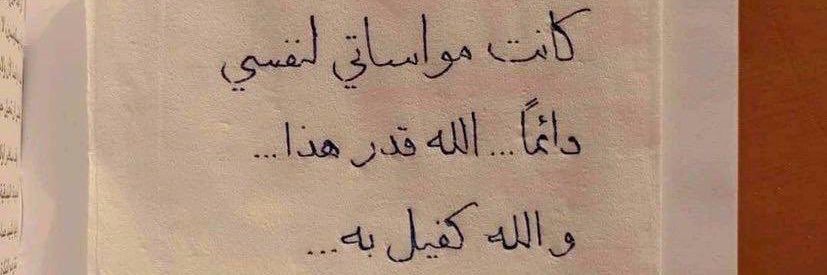 كانت مواساتي لنفسي
دائماً... الله قدر هذا...
والله كفيل به...